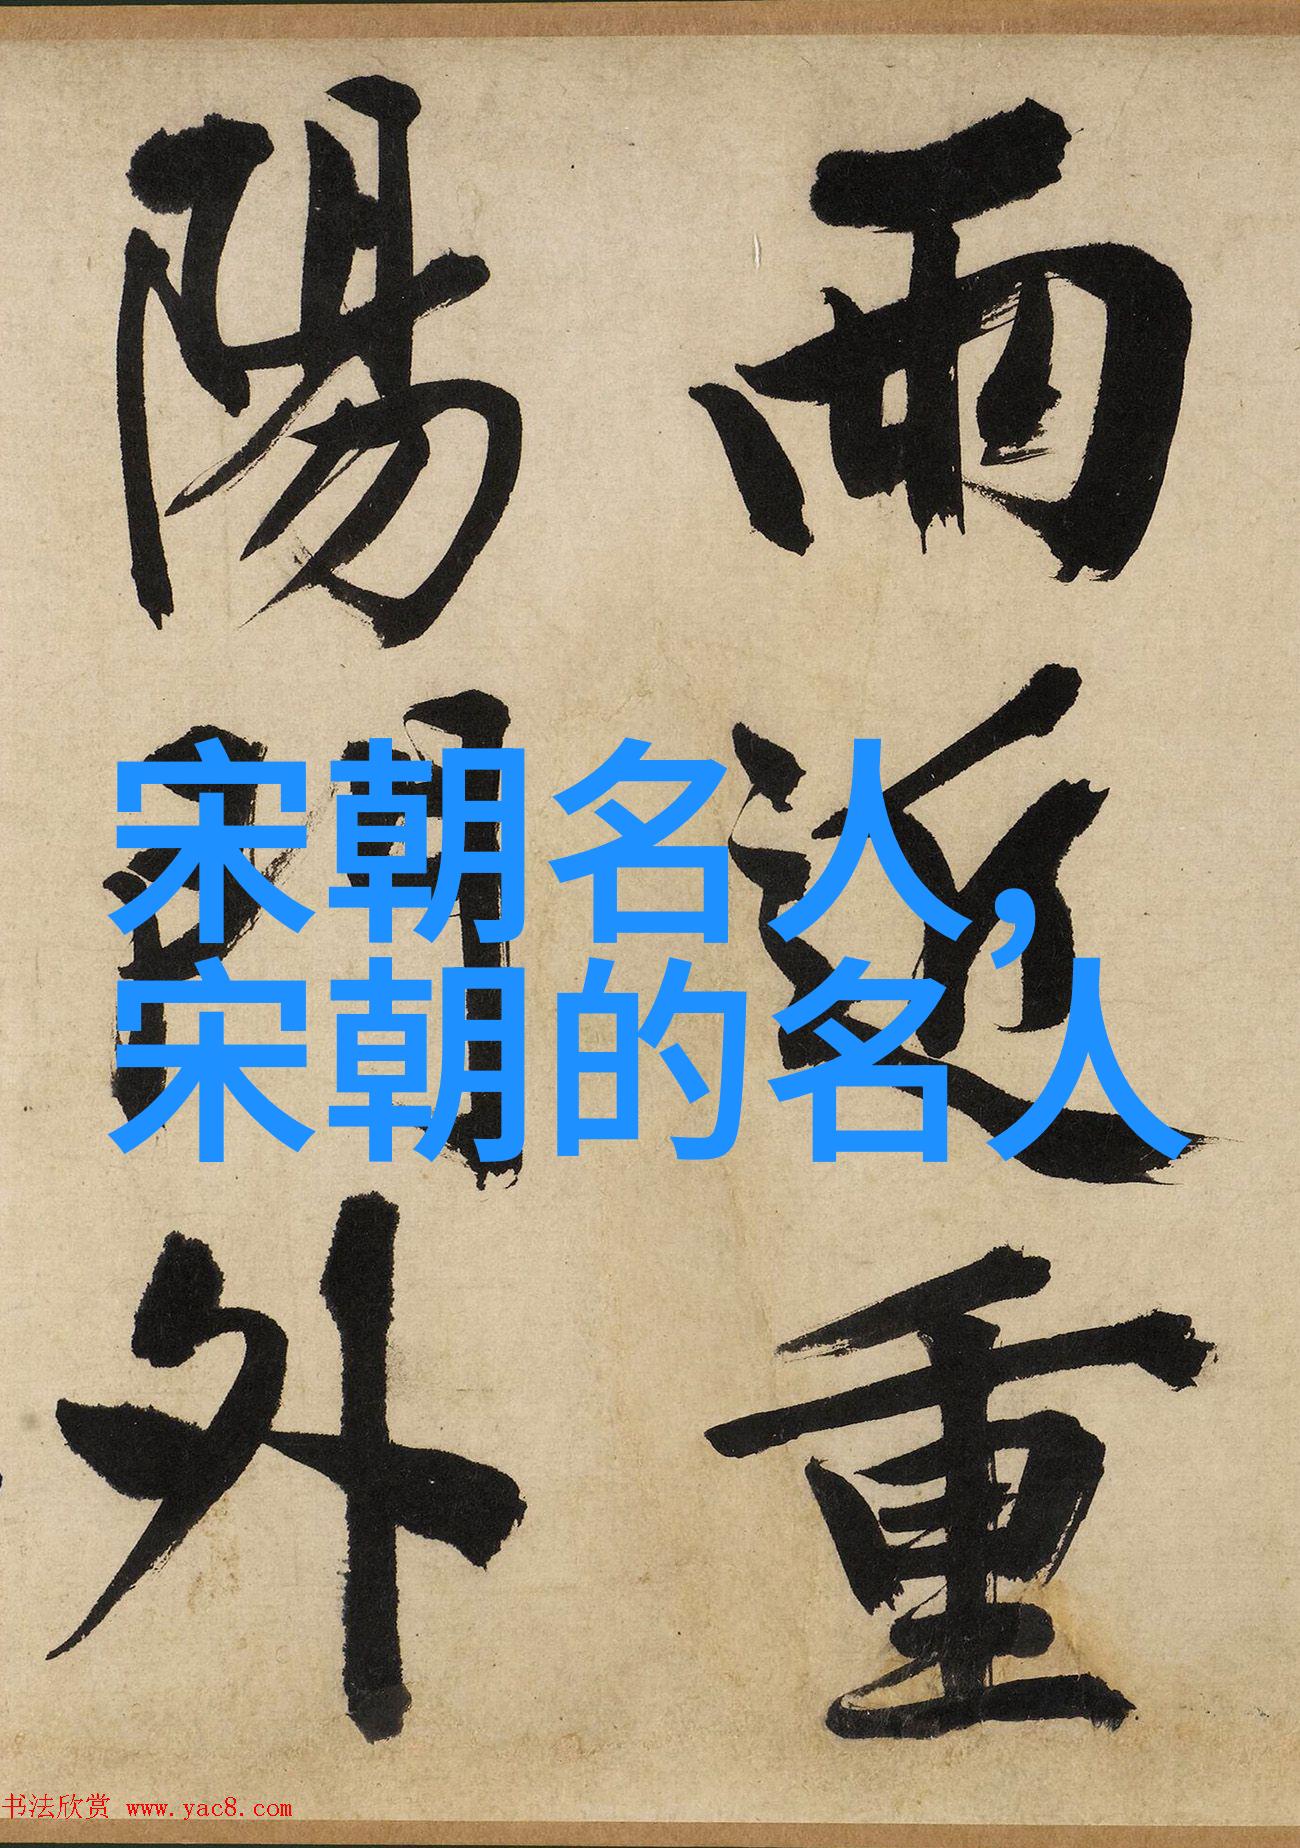 雨近重
陽門外
宋朝名人,
宋朝的名人
书法欣赏 www.yac8.com